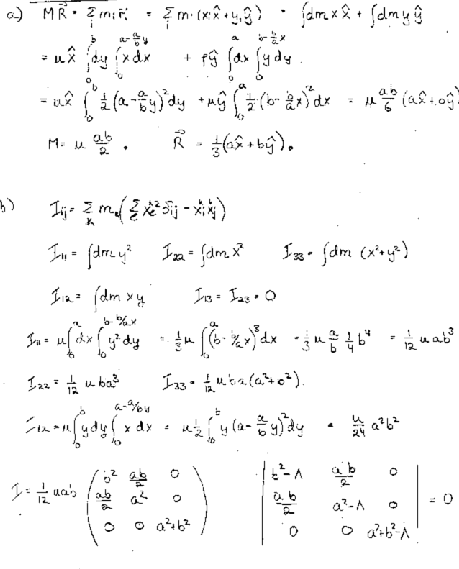 a) M\vec{R} = \sum_i m_i \vec{r}_i = \sum_i m_i (x_i \hat{x} + y_i \hat{y}) = \int dm x \hat{x} + \int dm y \hat{y}
= u \hat{x} \int_0^b dy \int_0^{a - \frac{a}{b} y} x dx + \rho \hat{y} \int_0^a dx \int_0^{b - \frac{b}{a} x} y dy .
= u \hat{x} \int_0^b \frac{1}{2} (a - \frac{a}{b} y)^2 dy + u \hat{y} \int_0^a \frac{1}{2} (b - \frac{b}{a} x)^2 dx = u \frac{ab}{6} (a \hat{x} + b \hat{y})
M = u \frac{ab}{2} . \vec{R} = \frac{1}{3} (a \hat{x} + b \hat{y}) .
b) I_{ij} = \sum_k m_k ( \sum_l x_l^{k2} \delta_{ij} - x_i^k x_j^k )
I_{11} = \int dm y^2 I_{22} = \int dm x^2 I_{33} = \int dm (x^2 + y^2)
I_{12} = \int dm x y I_{13} = I_{23} = 0
I_{11} = u \int_0^a dx \int_0^{b - b/a x} y^2 dy = \frac{1}{3} u \int_0^a (b - b/a x)^3 dx = \frac{1}{3} u \frac{a}{b} \frac{1}{4} b^4 = \frac{1}{12} u a b^3
I_{22} = \frac{1}{12} u b a^3 I_{33} = \frac{1}{12} u b a (a^2 + b^2) .
I_{12} = u \int_0^b y dy \int_0^{a - a/b y} x dx = u \frac{1}{2} \int_0^b y (a - \frac{a}{b} y)^2 dy = \frac{u}{24} a^2 b^2
I = \frac{1}{12} u a b \begin{pmatrix} b^2 & \frac{ab}{2} & 0 \\ \frac{ab}{2} & a^2 & 0 \\ 0 & 0 & a^2 + b^2 \end{pmatrix} \begin{vmatrix} b^2 - \Lambda & \frac{ab}{2} & 0 \\ \frac{ab}{2} & a^2 - \Lambda & 0 \\ 0 & 0 & a^2 + b^2 - \Lambda \end{vmatrix} = 0